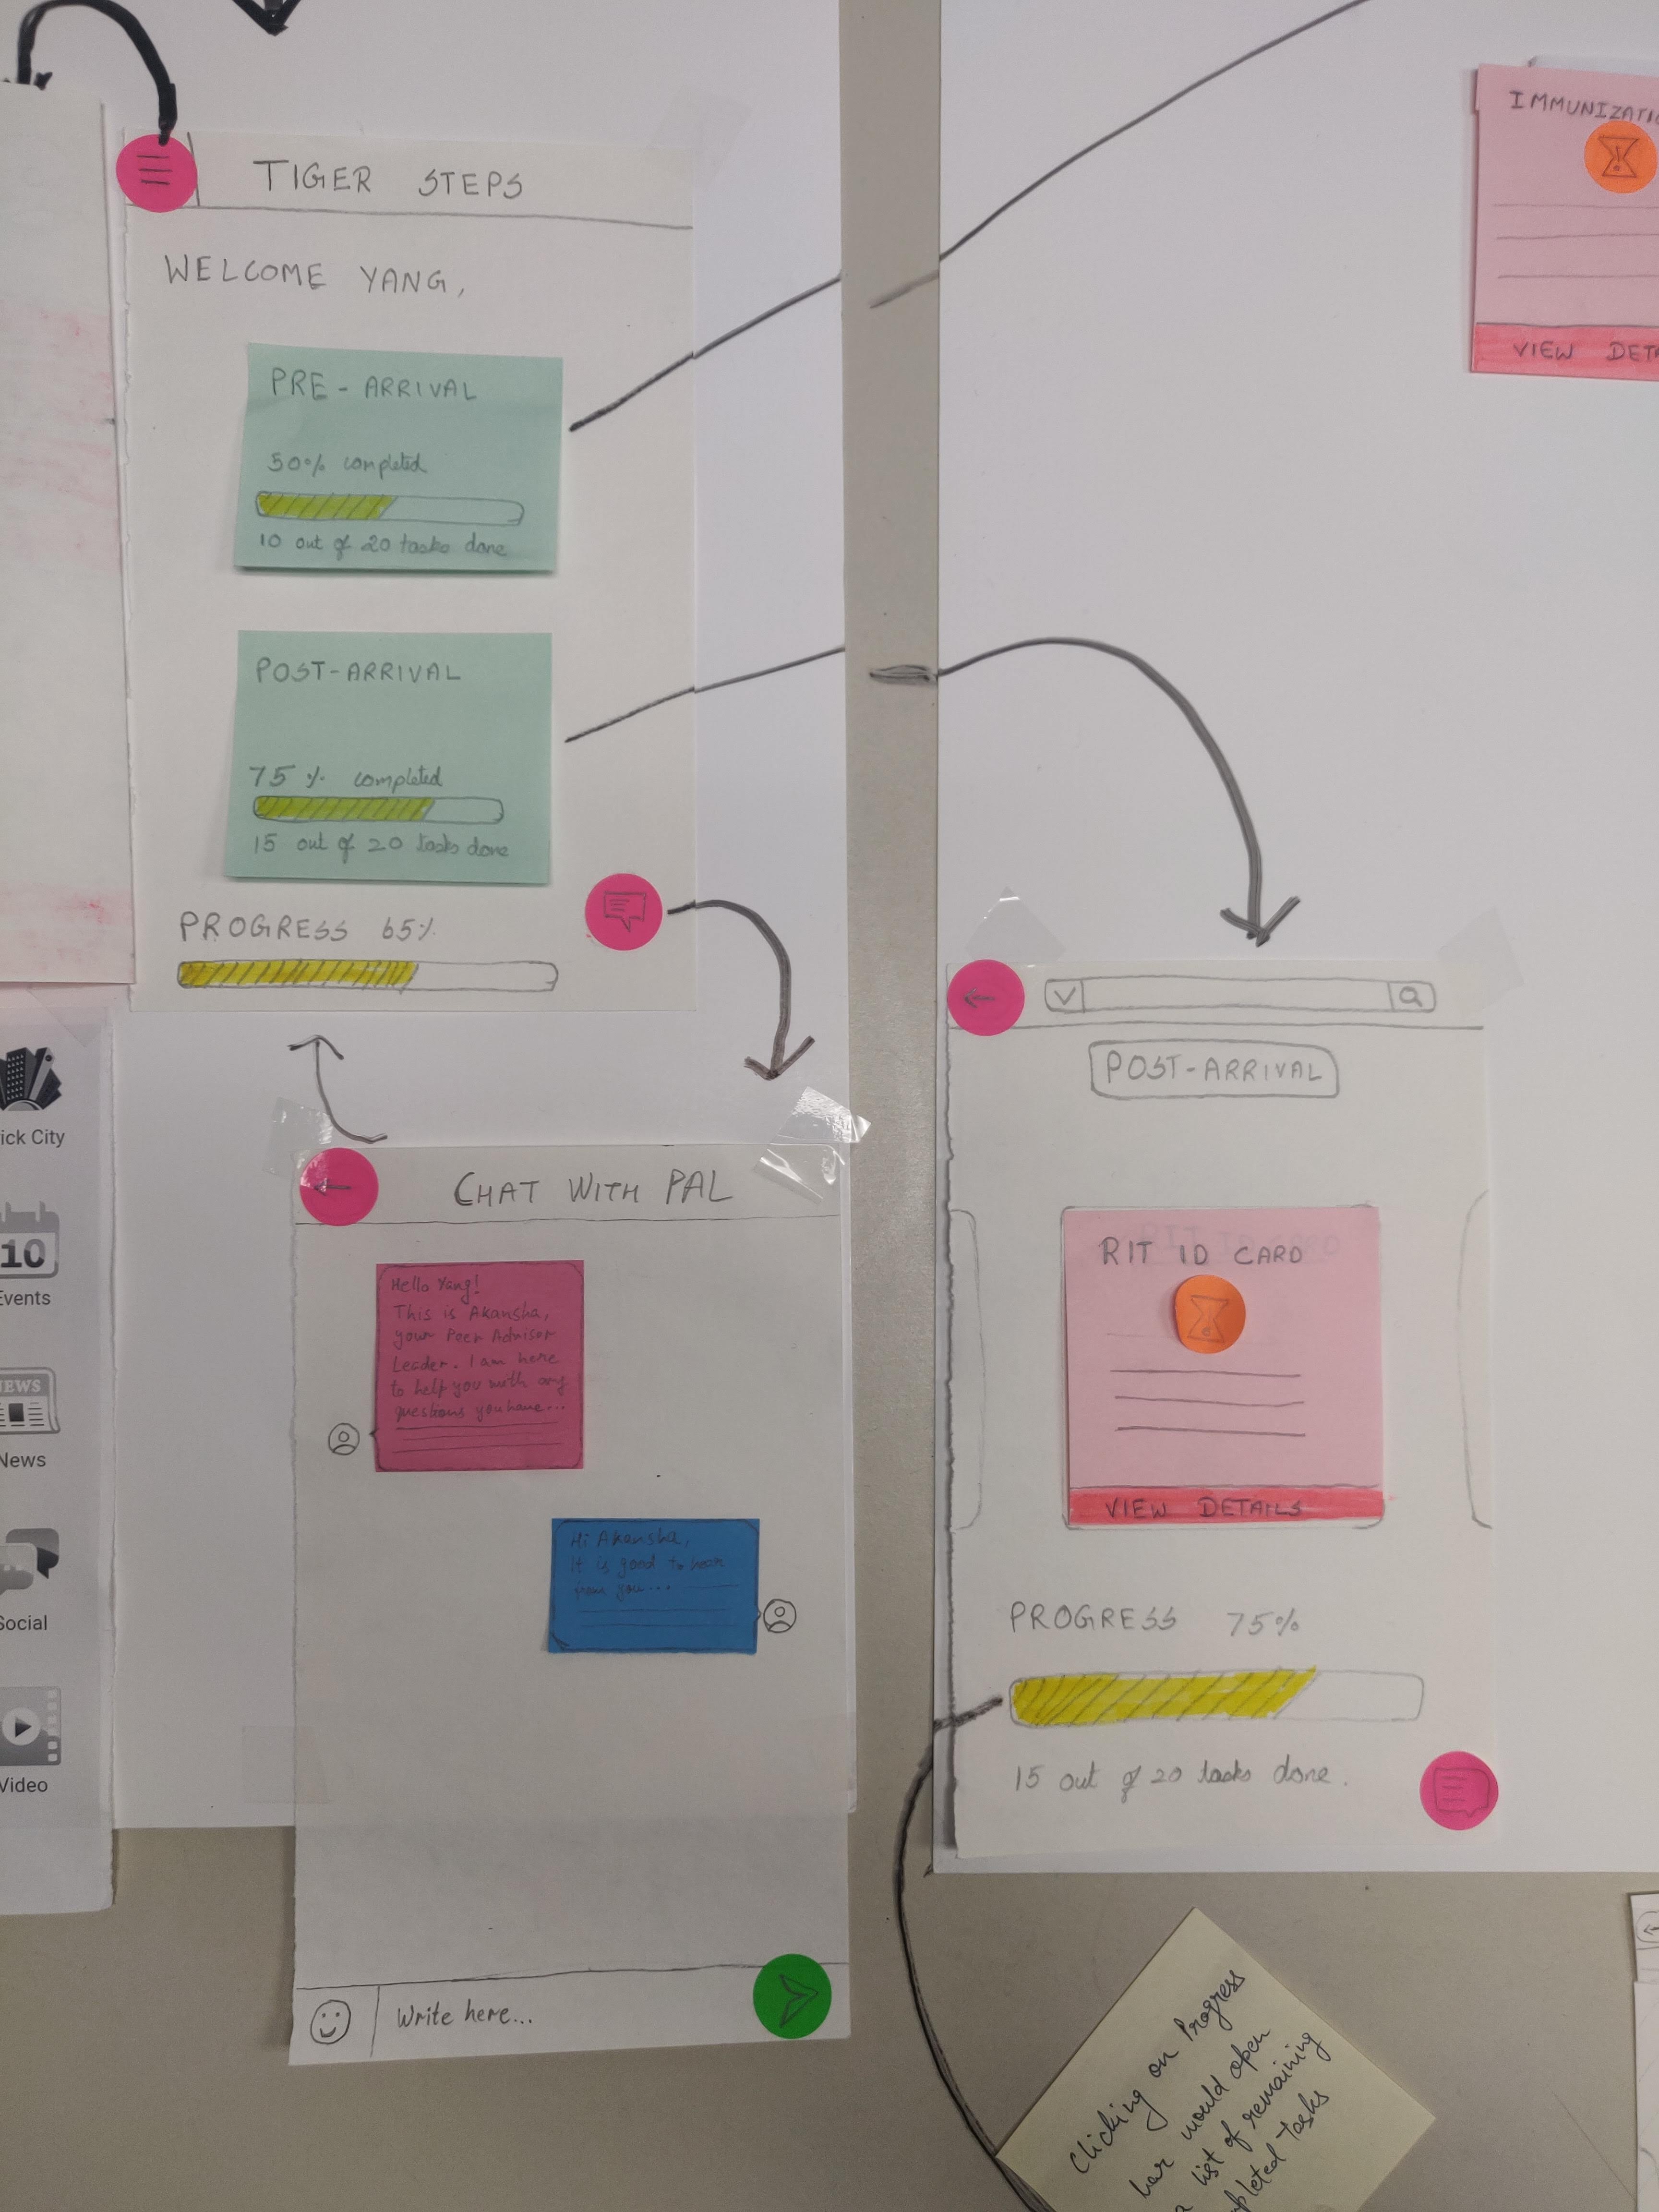 TIGER STEPS
WELCOME YANG,
PRE-ARRIVAL
50% completed
10 out of 20 tasks done
POST-ARRIVAL
75% completed
15 out of 20 tasks done
PROGRESS 65%
IMMUNIZATI
VIEW DETA
ick City
10
Events
NEWS
News
Social
Video
CHAT WITH PAL
Hello Yang!
This is Akansha,
your Peer Advisor
Leader. I am here
to help you with any
questions you have...
Hi Akansha,
It is good to hear
from you...
Write here...
POST-ARRIVAL
RIT ID CARD
VIEW DETAILS
PROGRESS 75%
15 out of 20 tasks done.
Clicking on Progress
bar would open
list of remaining
pleted Tasks